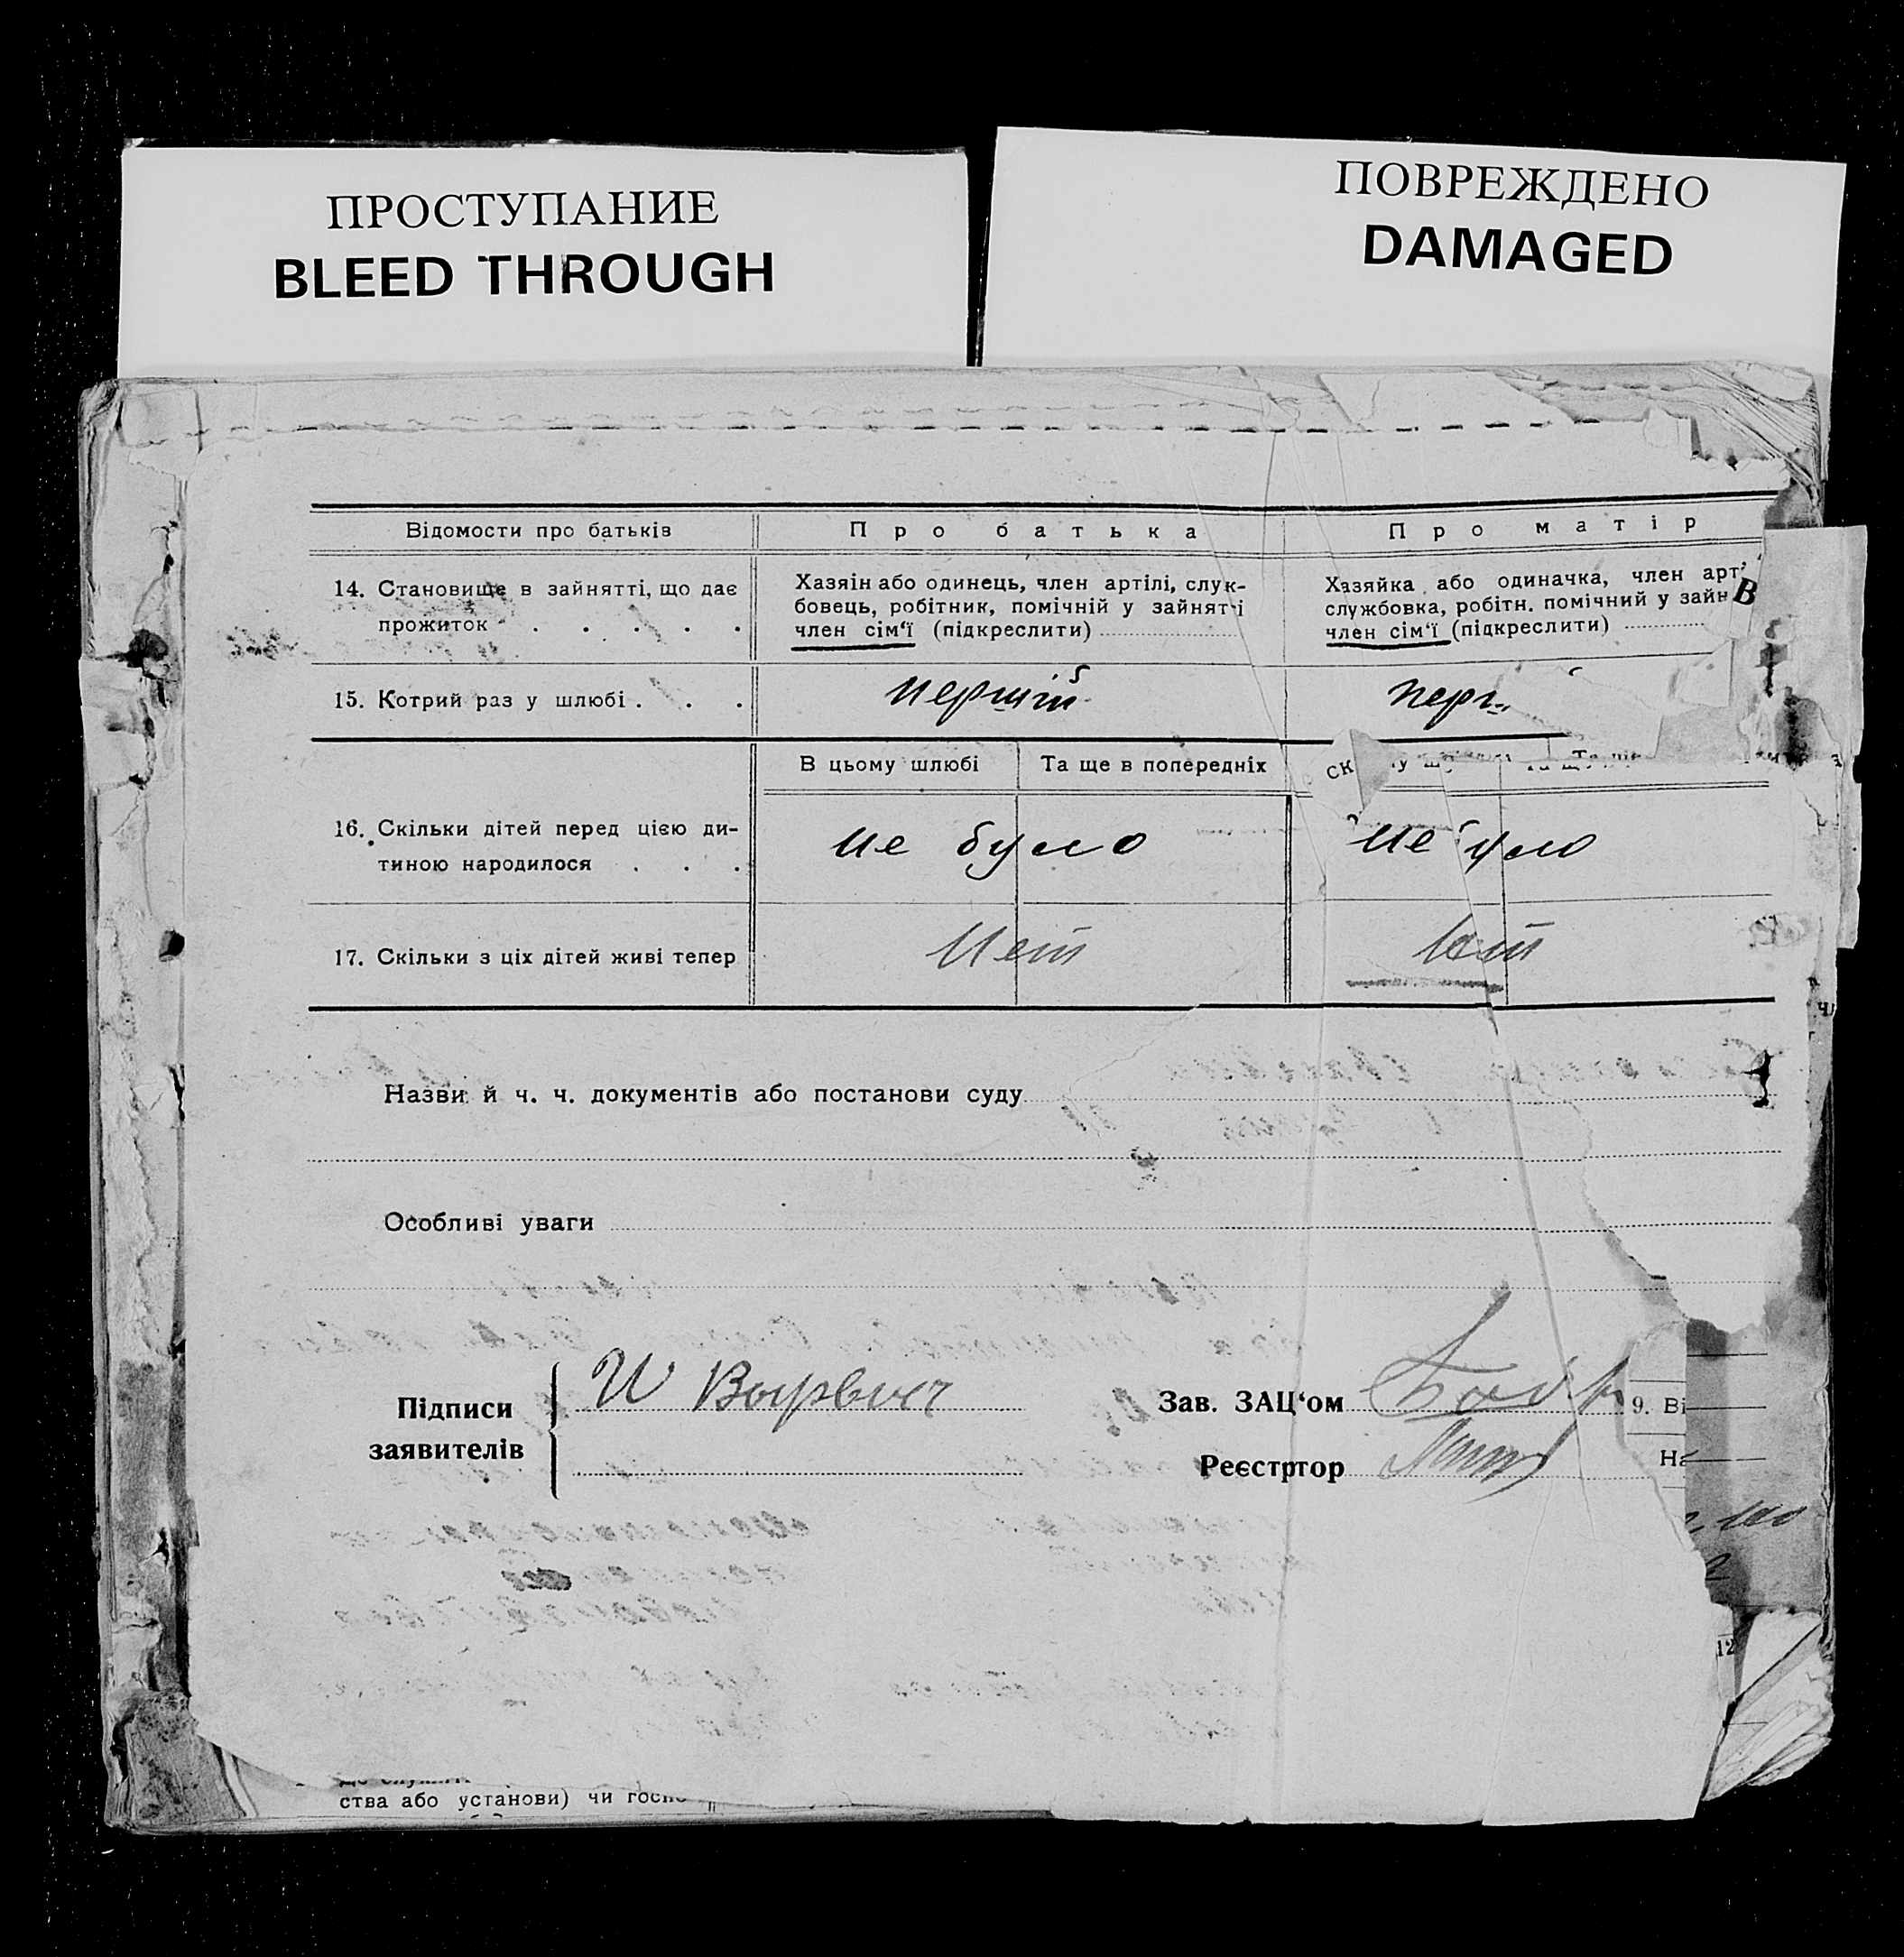 ПРОСТУПАНИЕ
BLEED THROUGH
ПОВРЕЖДЕНО
DAMAGED
Відомости про батьків
Про батька
Про матір
14. Становище в зайнятті, що дає
прожиток
Хазяін або одинець, член артілі, служ-
бовець, робітник, помічній у зайнятті
член сім‘ї (підкреслити)
Хазяйка або одиначка, член арт
службовка, робітн. помічний у зайн
член сім‘ї (підкреслити)
В
15. Котрий раз у шлюбі
перший
перш
В цьому шлюбі
Та ще в попередніх
16. Скільки дітей перед цією ди-
тиною народилося
не було
не було
17. Скільки з ціх дітей живі тепер
Нет
Нет
Назви й ч. ч. документів або постанови суду
Особливі уваги
Підписи
заявителів
Зав. ЗАЦ‘ом
Реєстртор
9. Ві
На
12
ства або установи) чи госпо